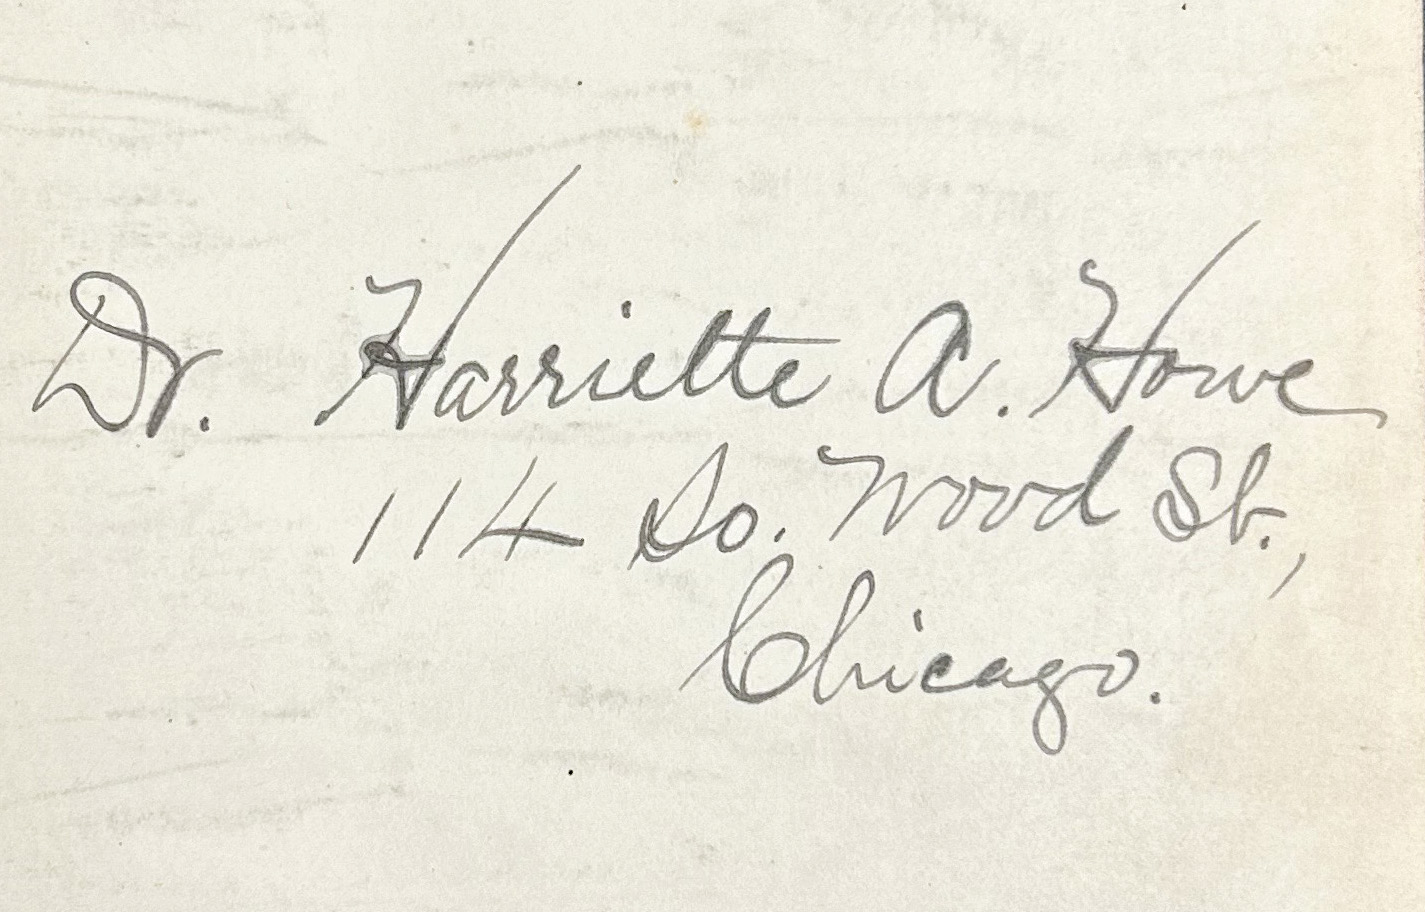 Dr. Harriette A. Howe
114 So. Wood St.,
Chicago.